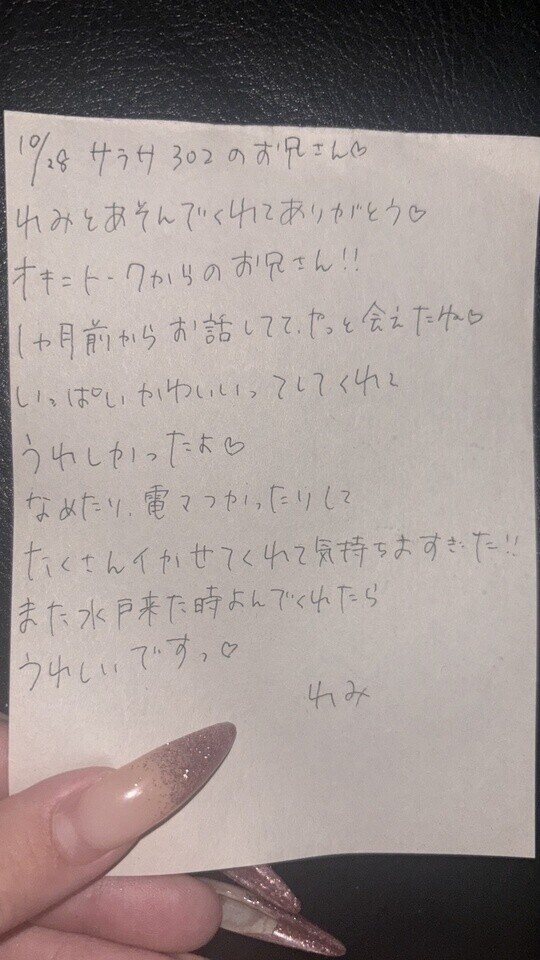 10/28 サラサ302のお兄さん♡
れみとあそんでくれてありがとう♡
オキニトークからのお兄さん!!
1ヵ月前からお話してて、やっと会えたね♡
いっぱいかわいいってしてくれて
うれしかったよ♡
なめたり、電マつかったりして
たくさんイかせてくれて気持ちよすぎた!!
また水戸来た時よんでくれたら
うれしいですっ♡
れみ